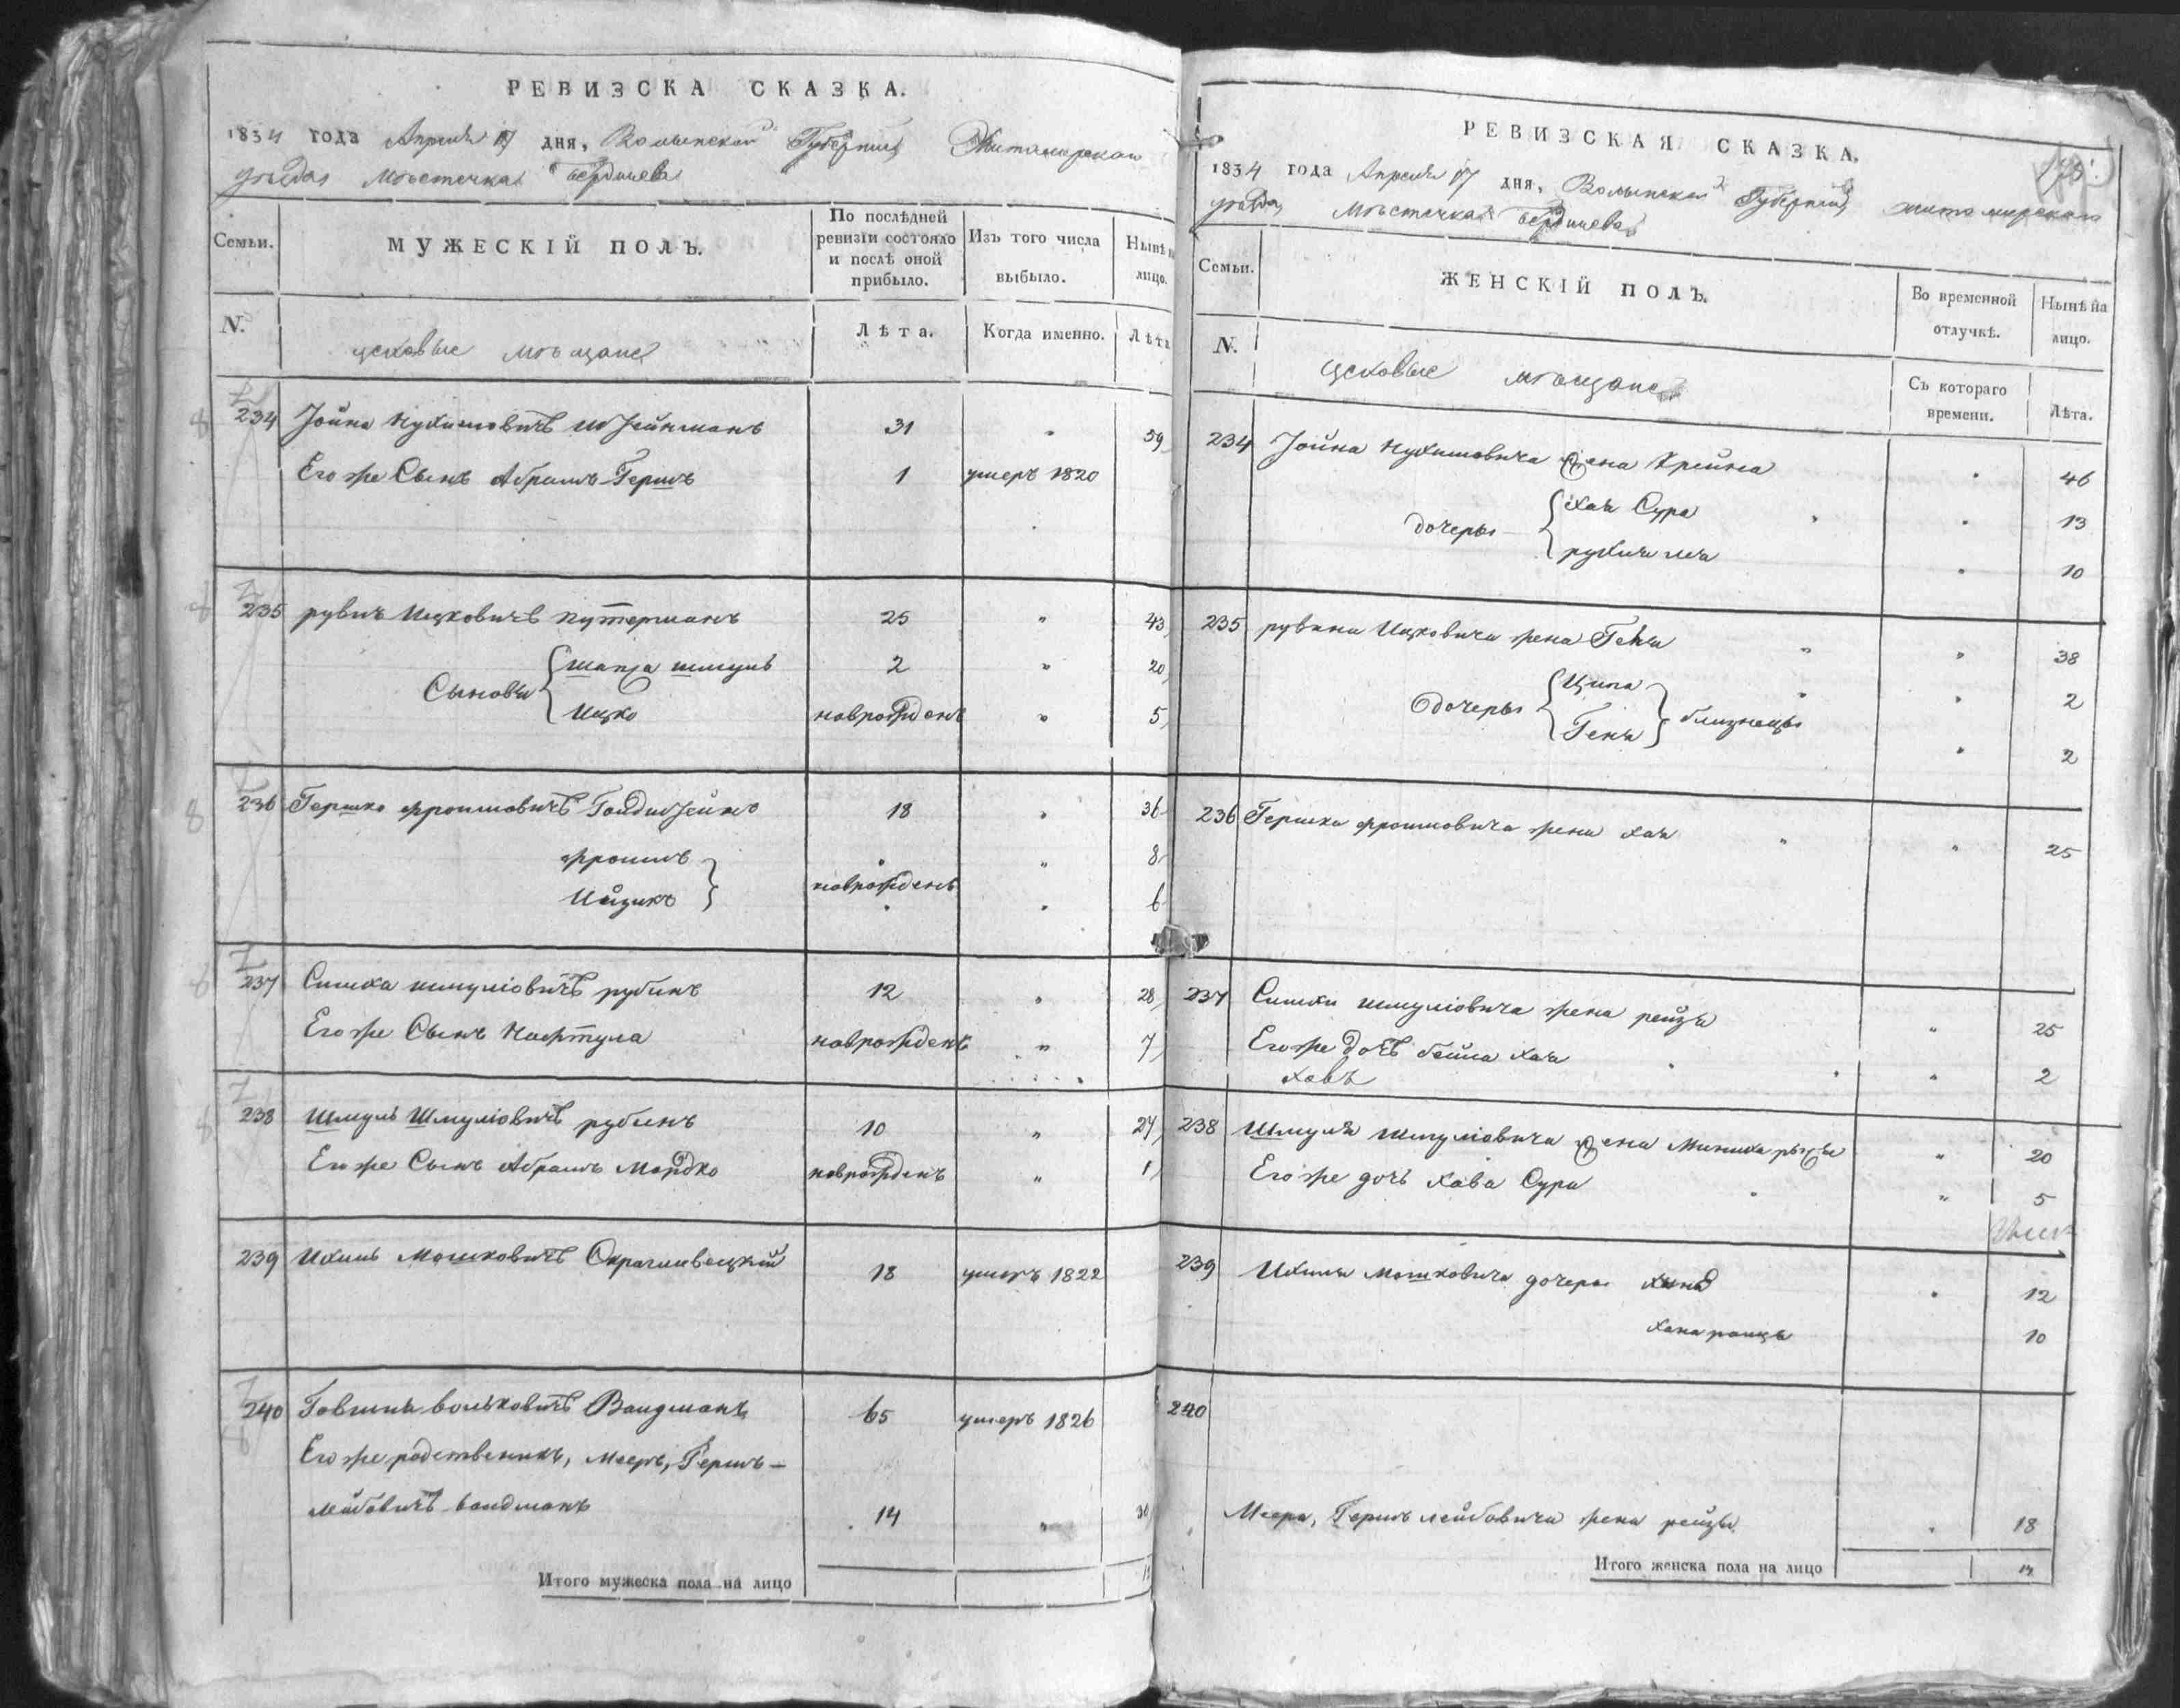 РЕВИЗСКА СКАЗКА.
1834 года Апреля 17 дня, Волынской Губерніи Житомирскаго
уѣзда Мѣстечка Бердичева
Семьи. МУЖЕСКІЙ ПОЛЪ. По послѣдней ревизіи состояло и послѣ оной прибыло. Изъ того числа выбыло. Нынѣ на лицо.
N. цеховые мѣщане Лѣта. Когда именно. Лѣта
234 Іойна Нухимовичъ 31 " 59
Его же Сынъ Абрамъ Гершъ 1 умеръ 1820
235 рувинъ Ицковичъ путерманъ 25 " 43
Сыновья шапса шмуль 2 " 20
Ицко новрожденъ " 5
236 Гершко фроимовичъ 18 " 36
фроимъ " " 8
Ицикъ новрожденъ " 6
237 Симха шмуліовичъ рубинъ 12 " 28
Его же Сынъ Нафтула новрожденъ " 7
238 Шмуль Шмуліовичъ рубинъ 10 " 27
Его же Сынъ Абрамъ Мордко новрожденъ " 1
239 Ихиль Мошковичъ 18 умеръ 1822
240 вольковичъ Вандманъ 65 умеръ 1826
Его же родственникъ, Мееръ, Гершъ –
лейбовичъ вандманъ 14 " 30
Итого мужеска пола на лицо
РЕВИЗСКАЯ СКАЗКА.
1834 года Апреля 17 дня, Волынской Губерніи житомирскаго
уѣзда Мѣстечка Бердичева
Семьи. ЖЕНСКІЙ ПОЛЪ. Во временной отлучкѣ. Нынѣ на лицо.
N. цеховые мѣщане Съ котораго времени. Лѣта.
234 Іойна Нухимовича жена Крейна " 46
дочеры Хая Сура " 13
рухля лея " 10
235 рувина Ицковича жена Геня " 38
дочеры Ципа " 2
Геня близнецы " 2
236 Гершка фроимовича жена хая " 25
237 Симхи шмуліовича жена рейзя " 25
Его же дочъ бейла хая " 2
238 Шмуля шмуліовича жена " 20
Его же дочь хава Сура " 5
239 Ихиля мошковича дочеры " 12
10
240
Меера, Гершъ лейбовича жена рейзя " 18
Итого женска пола на лицо